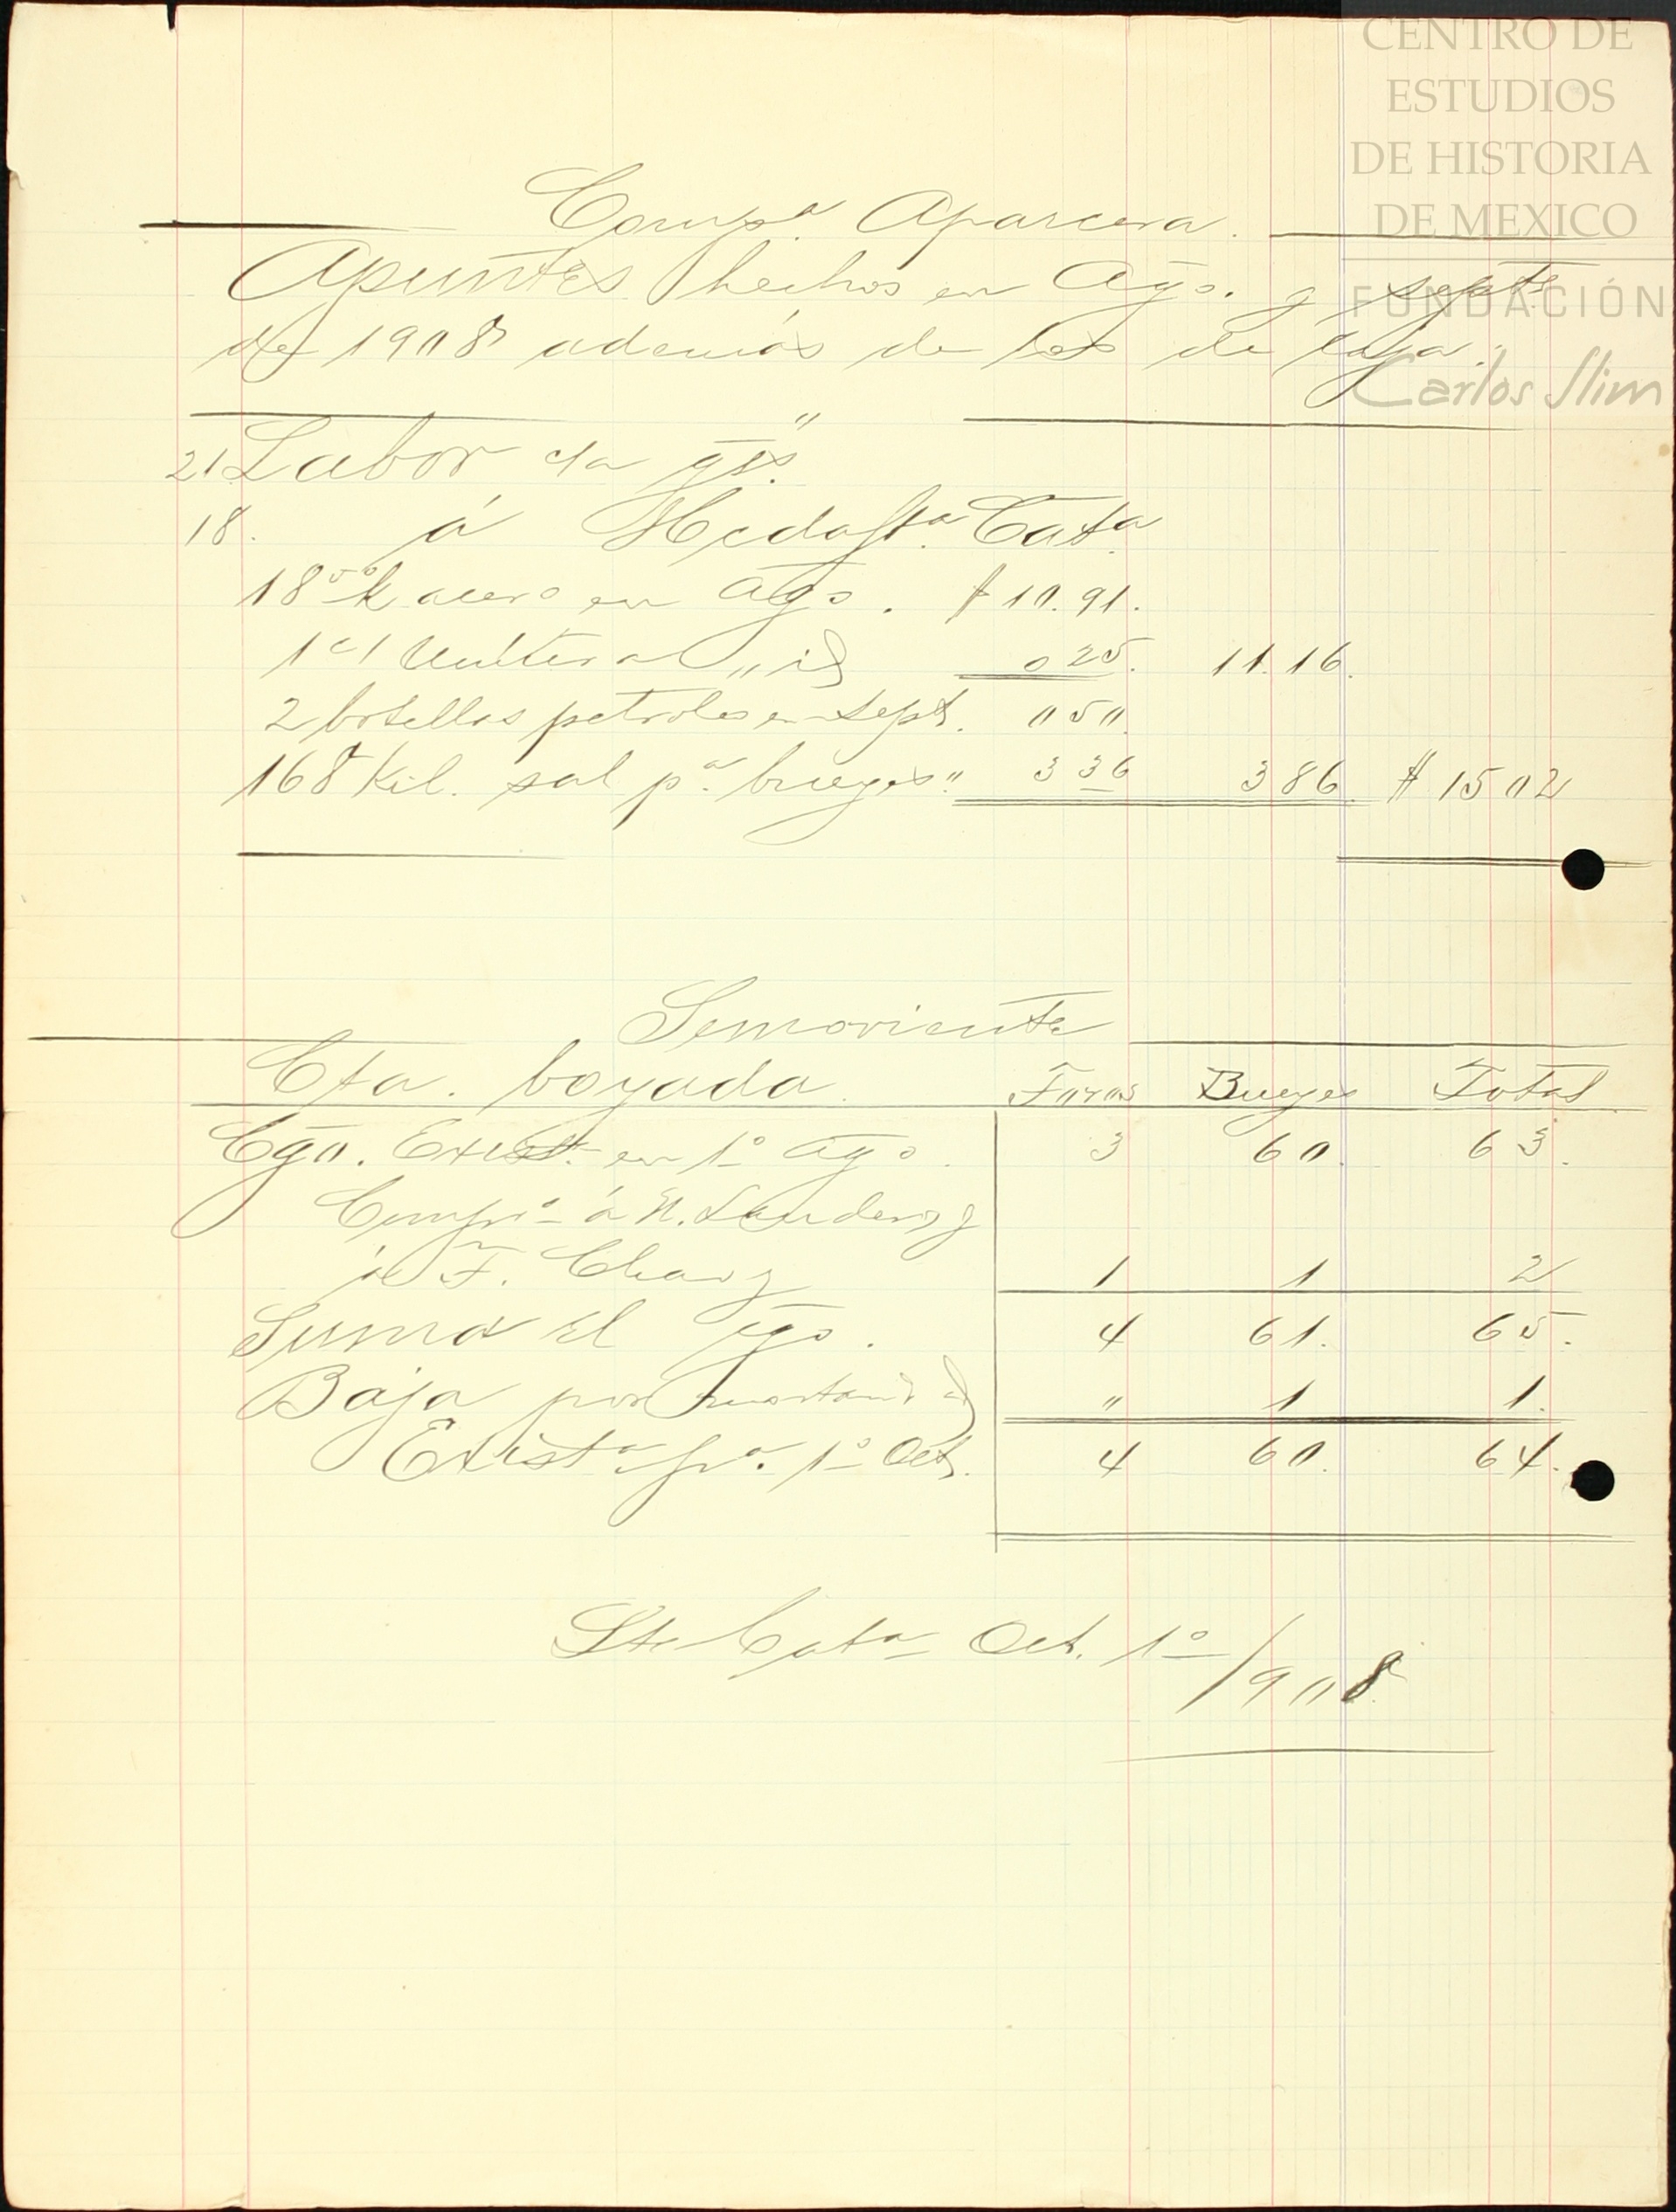 CENTRO DE
ESTUDIOS
DE HISTORIA
DE MEXICO
FUNDACIÓN
Carlos Slim
Comp.ª Aparcera.
Apuntes hechos en Ago. y Septe
de 1908 además de los de caja.
21 Labor da gs.
18. á Hcda Sta. Cata
18 50 k acero en Ago. $ 10.91.
1 id 0 25. 11.16.
2 botellas petroleo en Sept. 0 50.
168 Kil. sal pª bueyes " 3 36 3 86 $ 15 02
Semoviente
Cta. boyada. Toros Bueyes Total
Cgo. Exist. en 1º Ago. 3 60. 63.
Compró á N. y
F. 1 1 2
Suma el cgo. 4 61. 65.
Baja por mortandad " 1 1.
Existª pª. 1º Oct. 4 60. 64.
Sta Cata Oct. 1º/908.